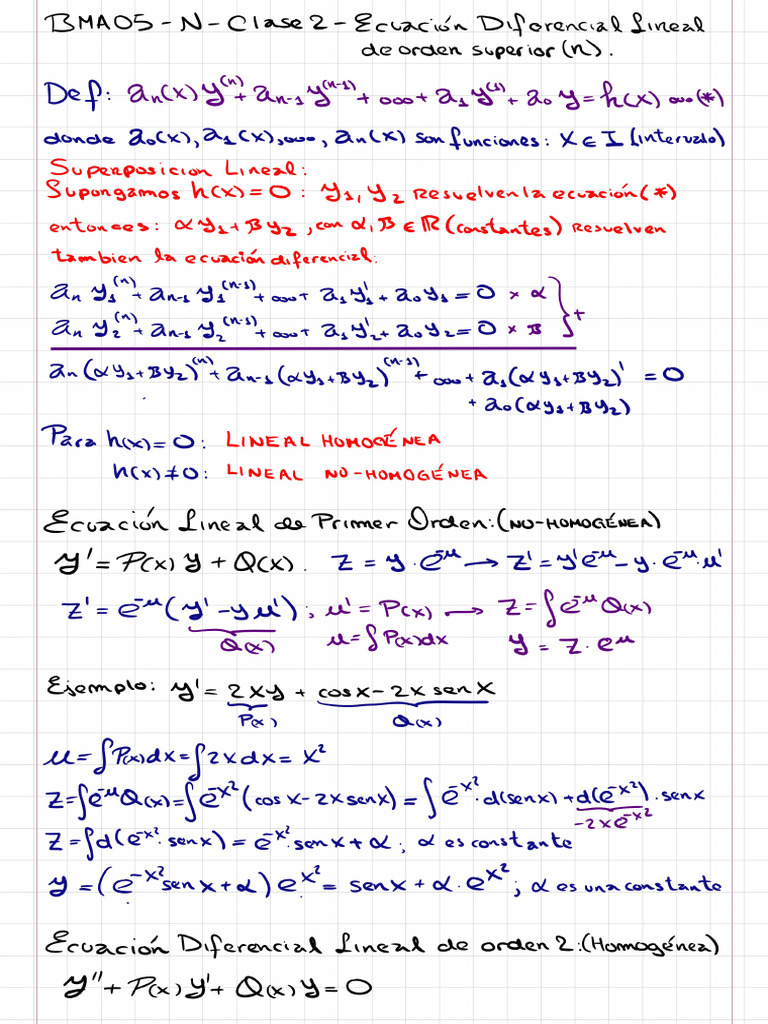 BMA05 - N - Clase 2 - Ecuación Diferencial Lineal
de orden superior (n).
Def: aₙ(x) y⁽ⁿ⁾ + aₙ₋₁ y⁽ⁿ⁻¹⁾ + ooo + a₁ y⁽¹⁾ + a₀ y = h(x) ooo (*)
donde a₀(x), a₁(x), ooo, aₙ(x) son funciones: x ∈ I (intervalo)
Superposicion Lineal:
Supongamos h(x) = 0 : y₁, y₂ Resuelven la ecuación (*)
entonces: αy₁ + βy₂, con α, β ∈ ℝ (constantes) resuelven
tambien la ecuación diferencial:
aₙ y₁⁽ⁿ⁾ + aₙ₋₁ y₁⁽ⁿ⁻¹⁾ + ooo + a₁ y₁' + a₀ y₁ = 0 × α
aₙ y₂⁽ⁿ⁾ + aₙ₋₁ y₂⁽ⁿ⁻¹⁾ + ooo + a₁ y₂' + a₀ y₂ = 0 × β } +
aₙ (αy₁ + βy₂)⁽ⁿ⁾ + aₙ₋₁ (αy₁ + βy₂)⁽ⁿ⁻¹⁾ + ooo + a₁ (αy₁ + βy₂)' = 0
+ a₀ (αy₁ + βy₂)
Para h(x) = 0 : LINEAL HOMOGÉNEA
h(x) ≠ 0 : LINEAL NO-HOMOGÉNEA
Ecuación Lineal de Primer Orden: (NO-HOMOGÉNEA)
y' = P(x) y + Q(x). z = y · e^-μ → z' = y' e^-μ - y · e^-μ · μ'
z' = e^-μ (y' - y μ') ; μ' = P(x) → z = ∫ e^-μ Q(x)
Q(x) μ = ∫ P(x) dx y = z · e^μ
Ejemplo: y' = 2xy + cos x - 2x sen x
P(x) Q(x)
μ = ∫ P(x) dx = ∫ 2x dx = x²
z = ∫ e^-μ Q(x) = ∫ e^-x² (cos x - 2x sen x) = ∫ e^-x² · d(sen x) + d(e^-x²) · sen x
-2x e^-x²
z = ∫ d(e^-x² · sen x) = e^-x² · sen x + α ; α es constante
y = (e^-x² sen x + α) e^x² = sen x + α · e^x² ; α es una constante
Ecuación Diferencial Lineal de orden 2: (Homogénea)
y'' + P(x) y' + Q(x) y = 0